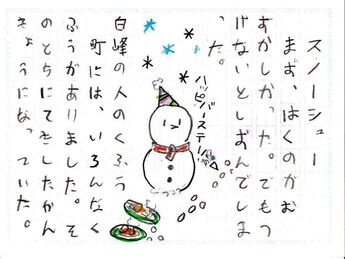 スノーシュー
まず、はくのがむ
ずかしかった。でもつ
けないとしずんでしま
った。
ハッピバースデー
白峰の人のくふう
町には、いろんなく
ふうがありました。そ
のとちにてきしたかん
きょうになっていた。